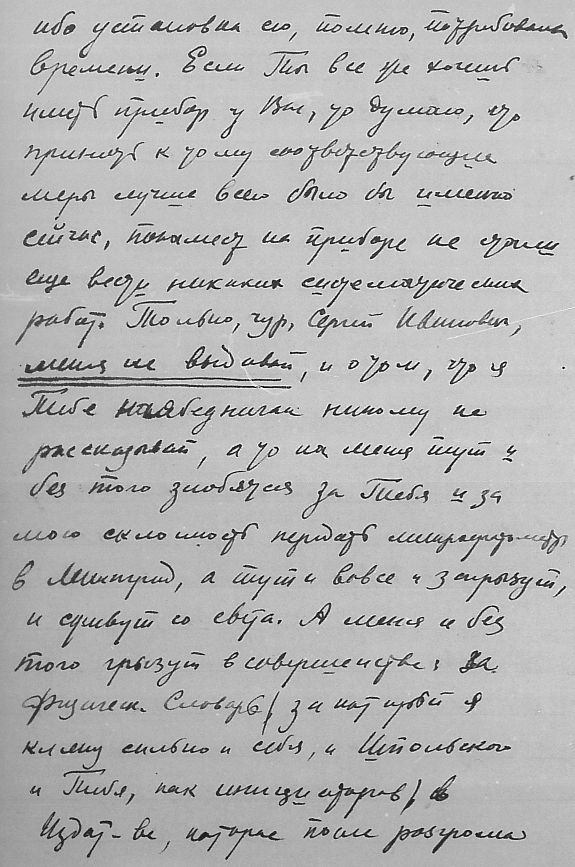 ибо установка ею, помню, потребовала
времени. Если Ты все же хочешь
иметь прибор у Вас, то думаю, что
принять к тому соответствующие
меры лучше всего было бы именно
сейчас, покамест на приборе не стали
еще вести никаких систематических
работ. Только, чур, Сергей Иванович,
меня не выдавай, и о том, что я
Тебе наябедничал никому не
рассказывай, а то на меня тут и
без того злобятся за Тебя и за
мою склонность передать микрофотометр
в Ленинград, а тут и вовсе и загрызут,
и сживут со света. А меня и без
того грызут в совершенстве: за
Физическ. Словарь (за который я
кляну сильно и себя, и Шпольского
и Тебя, как инициаторов) в
Издат-ве, которое после разгрома